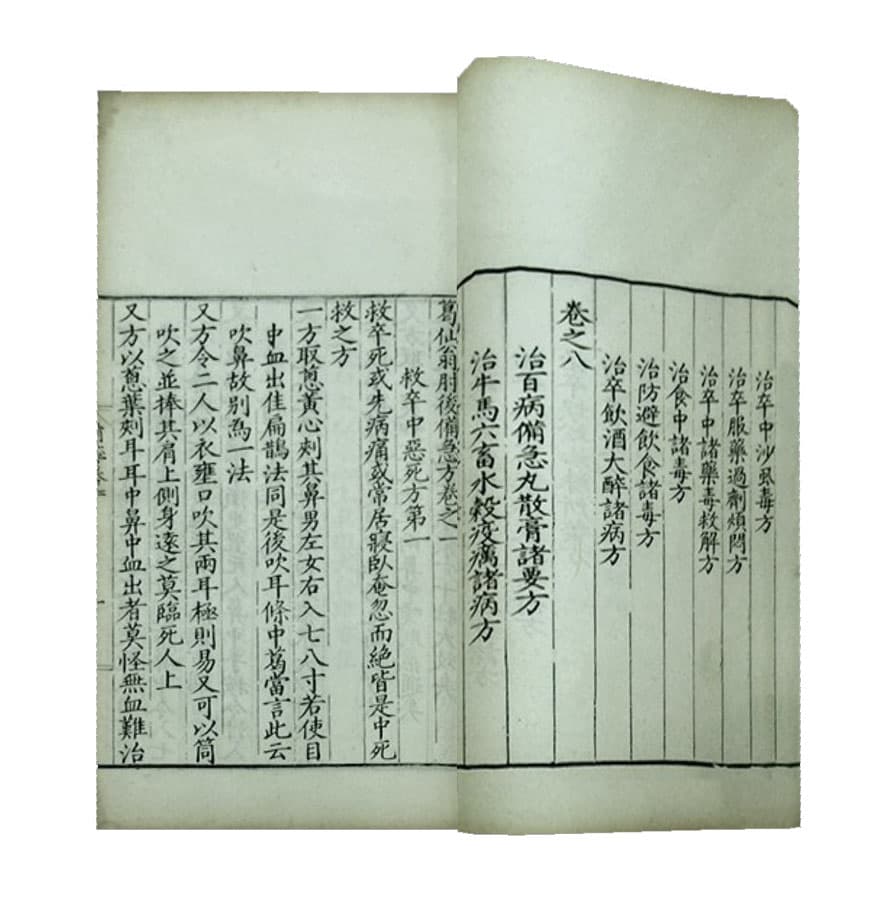 治卒中沙虱毒方
治卒服藥過劑煩悶方
治卒中諸藥毒救解方
治食中諸毒方
治防避飲食諸毒方
治卒飲酒大醉諸病方
卷之八
治百病備急丸散膏諸要方
治牛馬六畜水穀疫癘諸病方
葛仙翁肘後備急方卷之一
救卒中惡死方第一
救卒死或先病痛或常居寢臥奄忽而絶皆是中死
救之方
一方取葱黃心刾其鼻男左女右入七八寸若使目
中血出佳扁鵲法同是後吹耳條中葛當言此云
吹鼻故别為一法
又方令二人以衣壅口吹其兩耳極則易又可以筒
吹之並捧其肩上側身遠之莫臨死人上
又方以葱葉刾耳耳中鼻中血出者莫怪無血難治